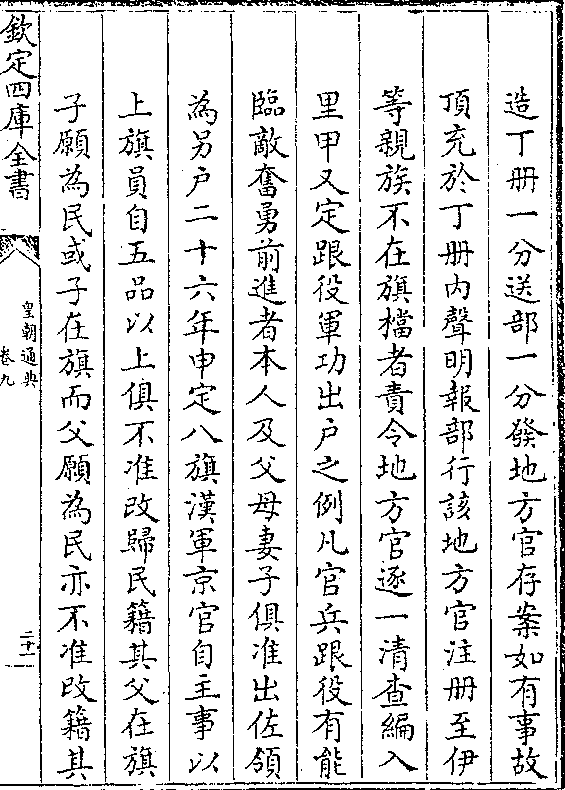 造丁册一分送部一分發地方官存案如有事故
頂充於丁册内聲明報部行該地方官注册至伊
等親族不在旗檔者責令地方官逐一清查編入
里甲又定跟役軍功出户之例凡官兵跟役有能
臨敵奮勇前進者本人及父母妻子俱准出佐領
為另户二十六年申定八旗漢軍京官自主事以
上旗員自五品以上俱不准改歸民籍其父在旗
子願為民或子在旗而父願為民亦不准改籍其
欽定四庫全書
皇朝通典
卷九
二十一